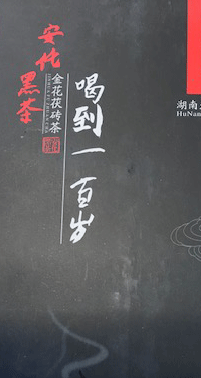 安化黑茶
金花茯砖茶
喝到一百岁
湖南
HuNan